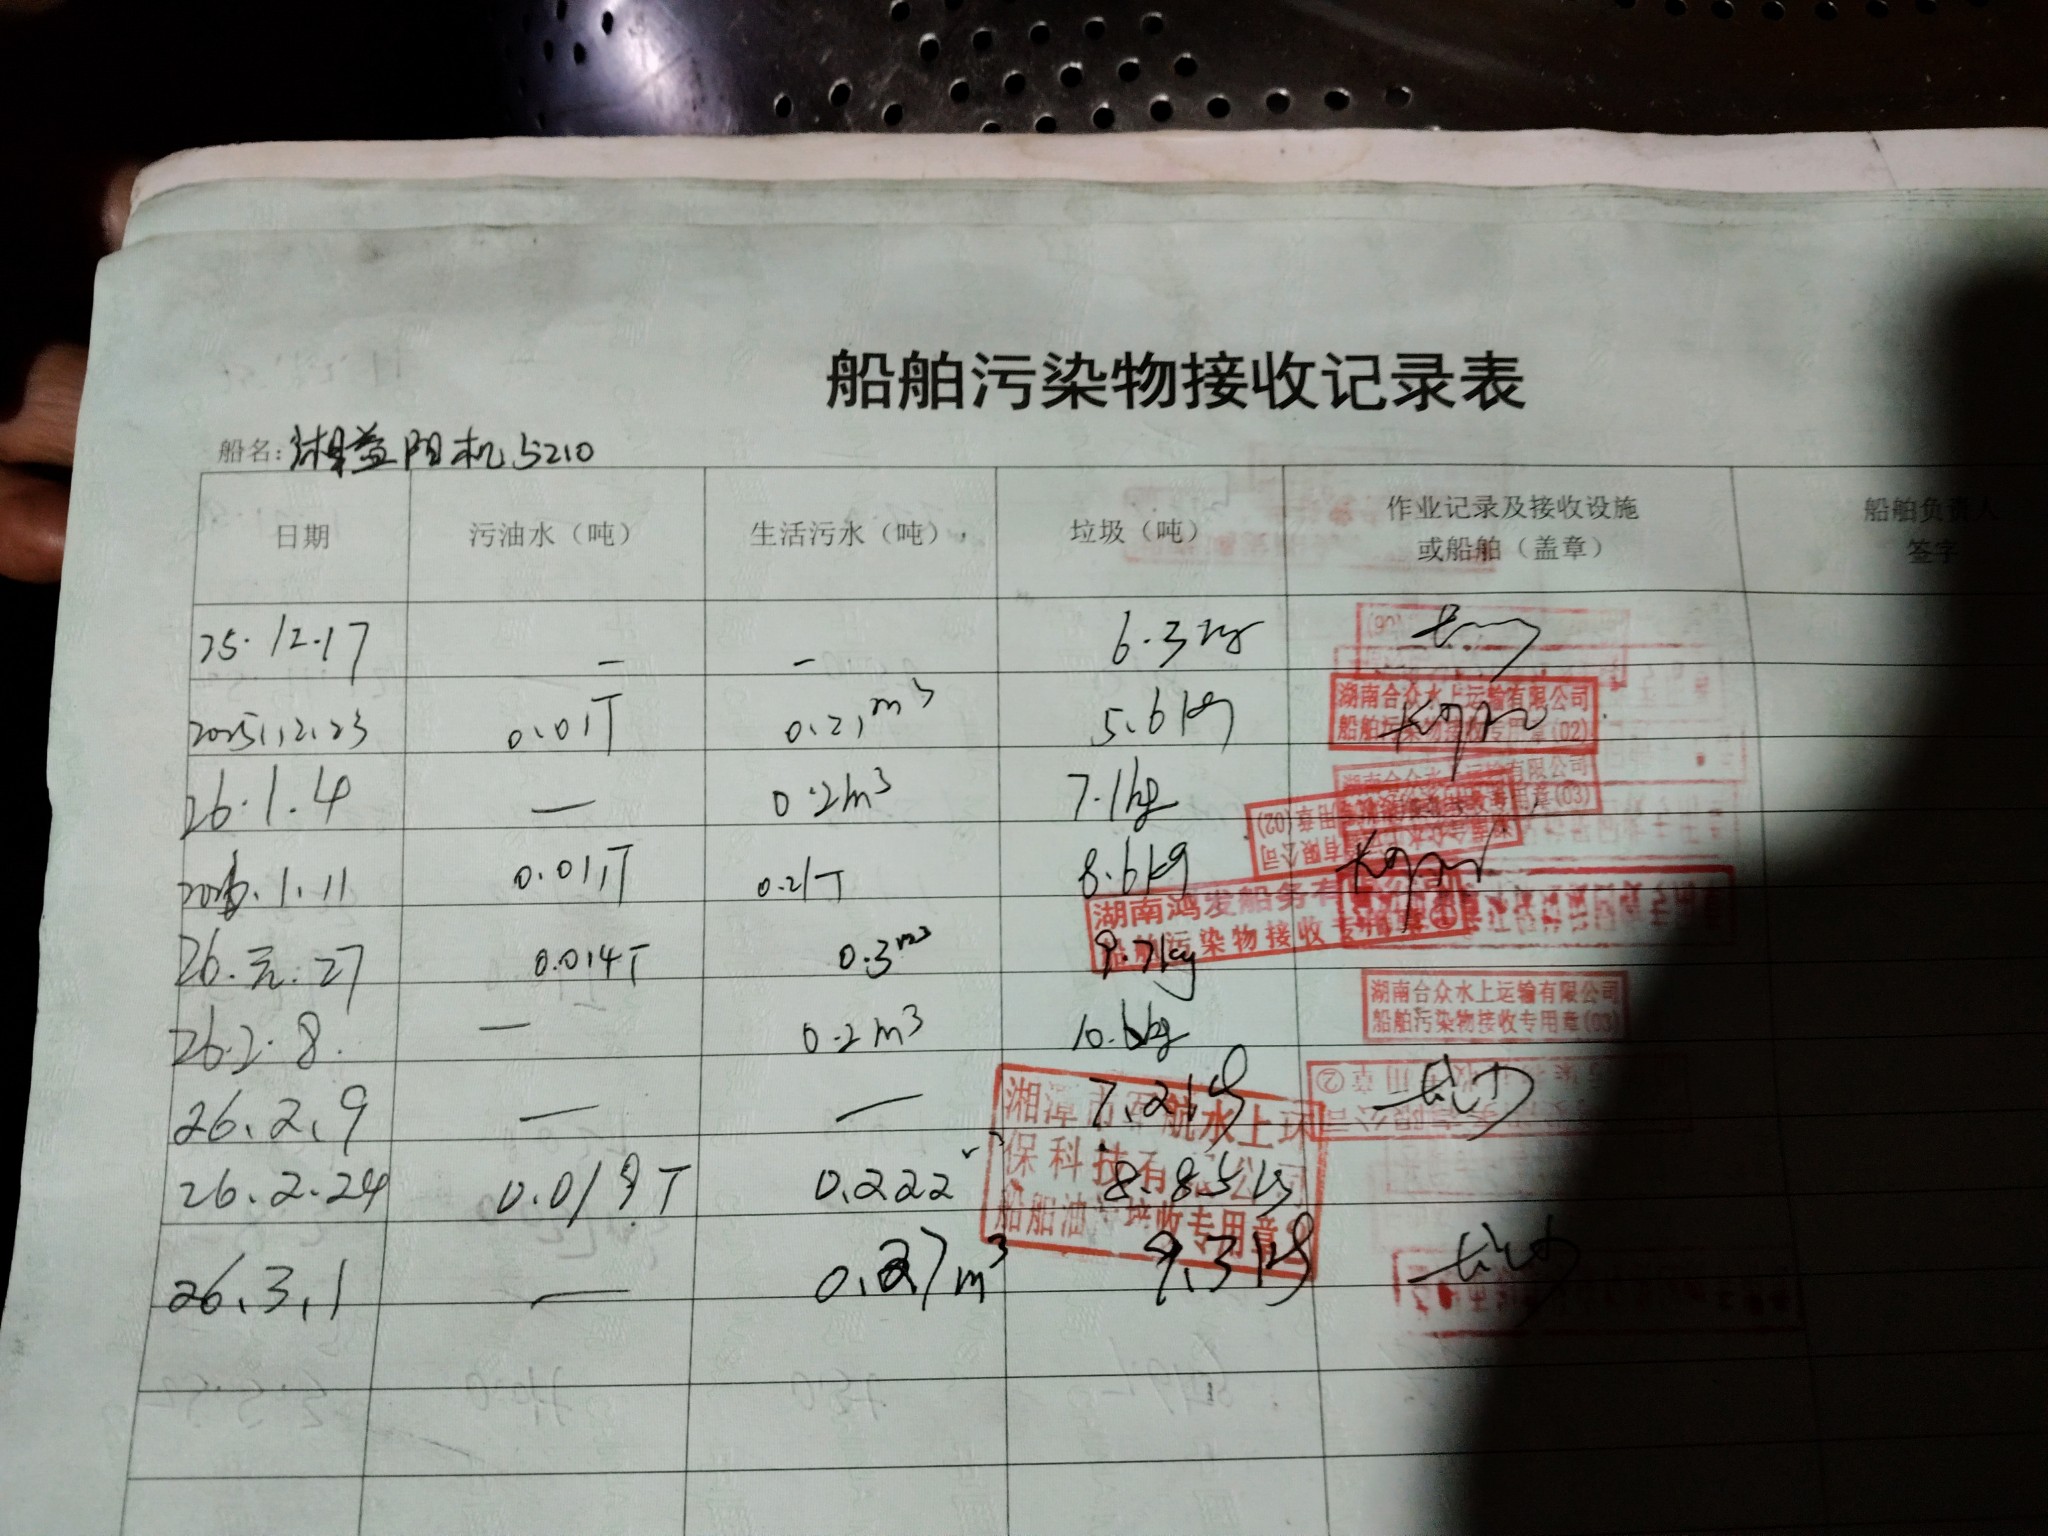 船舶污染物接收记录表
船名: 湘益阳机5210
日期 污油水（吨） 生活污水（吨） 垃圾（吨） 作业记录及接收设施或船舶（盖章） 船舶负责人签字
25.12.17 — — 6.3kg
2025.12.23 0.01T 0.21m³ 5.6kg
湖南合众水上运输有限公司
船舶污染物接收专用章(02)
26.1.4 — 0.2m³ 7.1kg
湖南合众水上运输有限公司
专用章(03)
2026.1.11 0.011T 0.21T 8.6kg
湖南鸿发船务有
船舶污染物接收专用章
26.元.27 0.014T 0.3m³ 9.7kg
26.2.8. — 0.2m³ 10.6kg
湖南合众水上运输有限公司
船舶污染物接收专用章(03)
26.2.9 — — 7.2kg
湘潭市 航水上环
保科技有 公司
船舶油 接收专用章
26.2.24 0.019T 0.222 8.85kg
26.3.1 — 0.27m³ 9.3kg